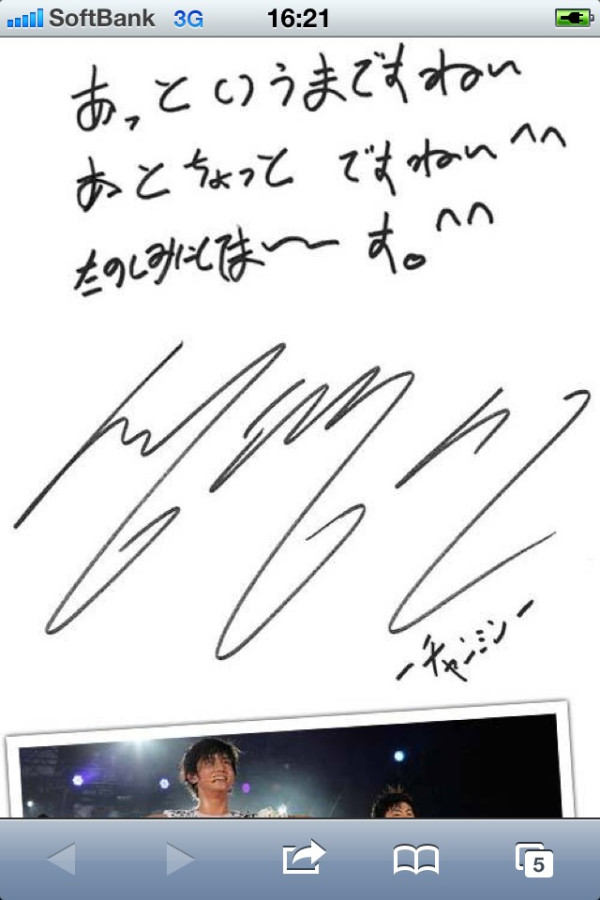 SoftBank 3G 16:21
あっというまですねい
あとちょっと ですねい^^
たのしみにしてま〜〜す。^^
ーチャンミンー
5